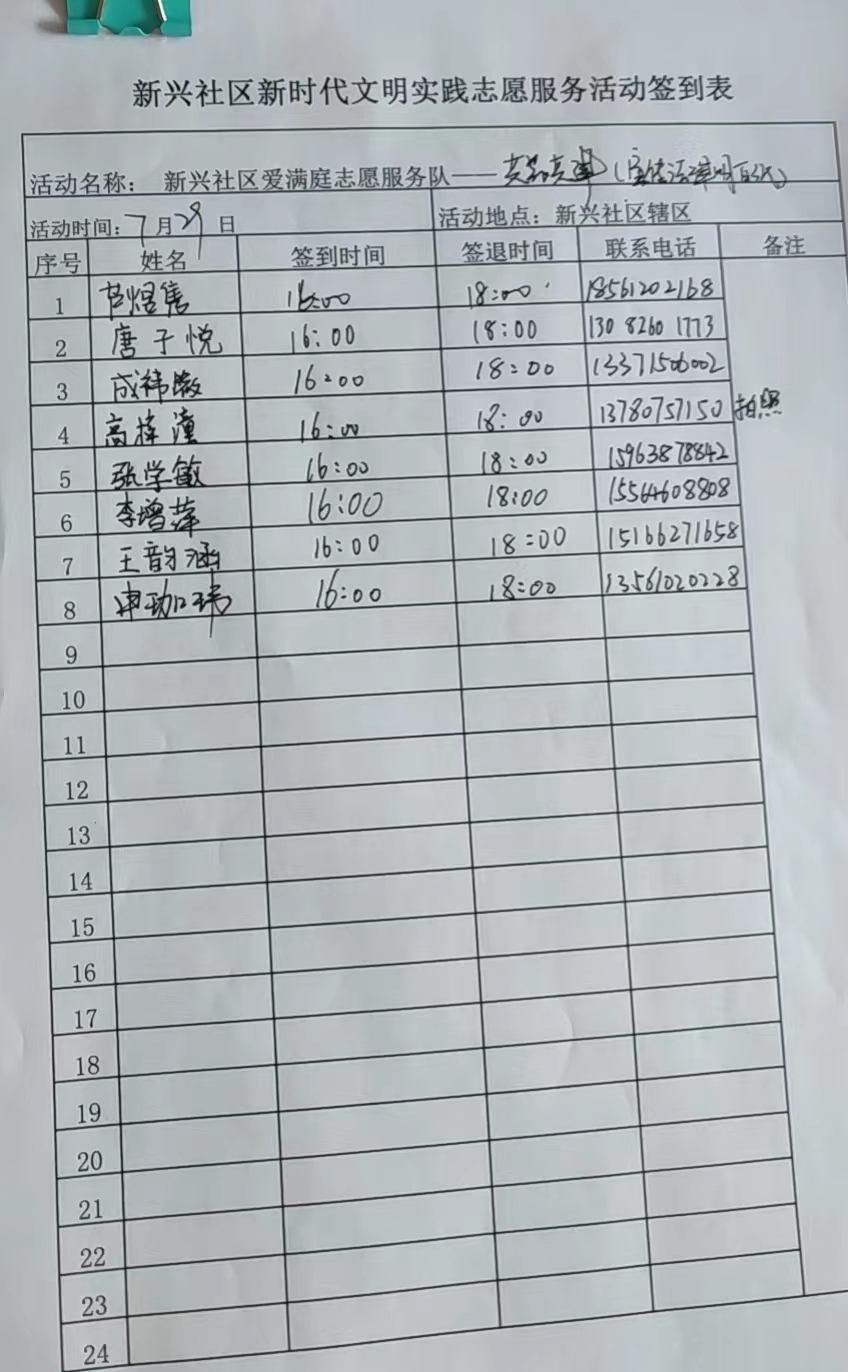 新兴社区新时代文明实践志愿服务活动签到表
活动名称： 新兴社区爱满庭志愿服务队——
活动时间：7月29日 活动地点：新兴社区辖区
序号 姓名 签到时间 签退时间 联系电话 备注
1 煜隽 16:00 18:00 18561202168
2 唐子悦 16:00 18:00 130 8260 1773
3 成祎璇 16:00 18:00 13371506002
4 高梓潼 16:00 18:00 13780757150 拍照
5 张学敏 16:00 18:00 15963878842
6 李增萍 16:00 18:00 15564608808
7 王韵涵 16:00 18:00 15166271658
8 申珈玮 16:00 18:00 13561020228
9
10
11
12
13
14
15
16
17
18
19
20
21
22
23
24